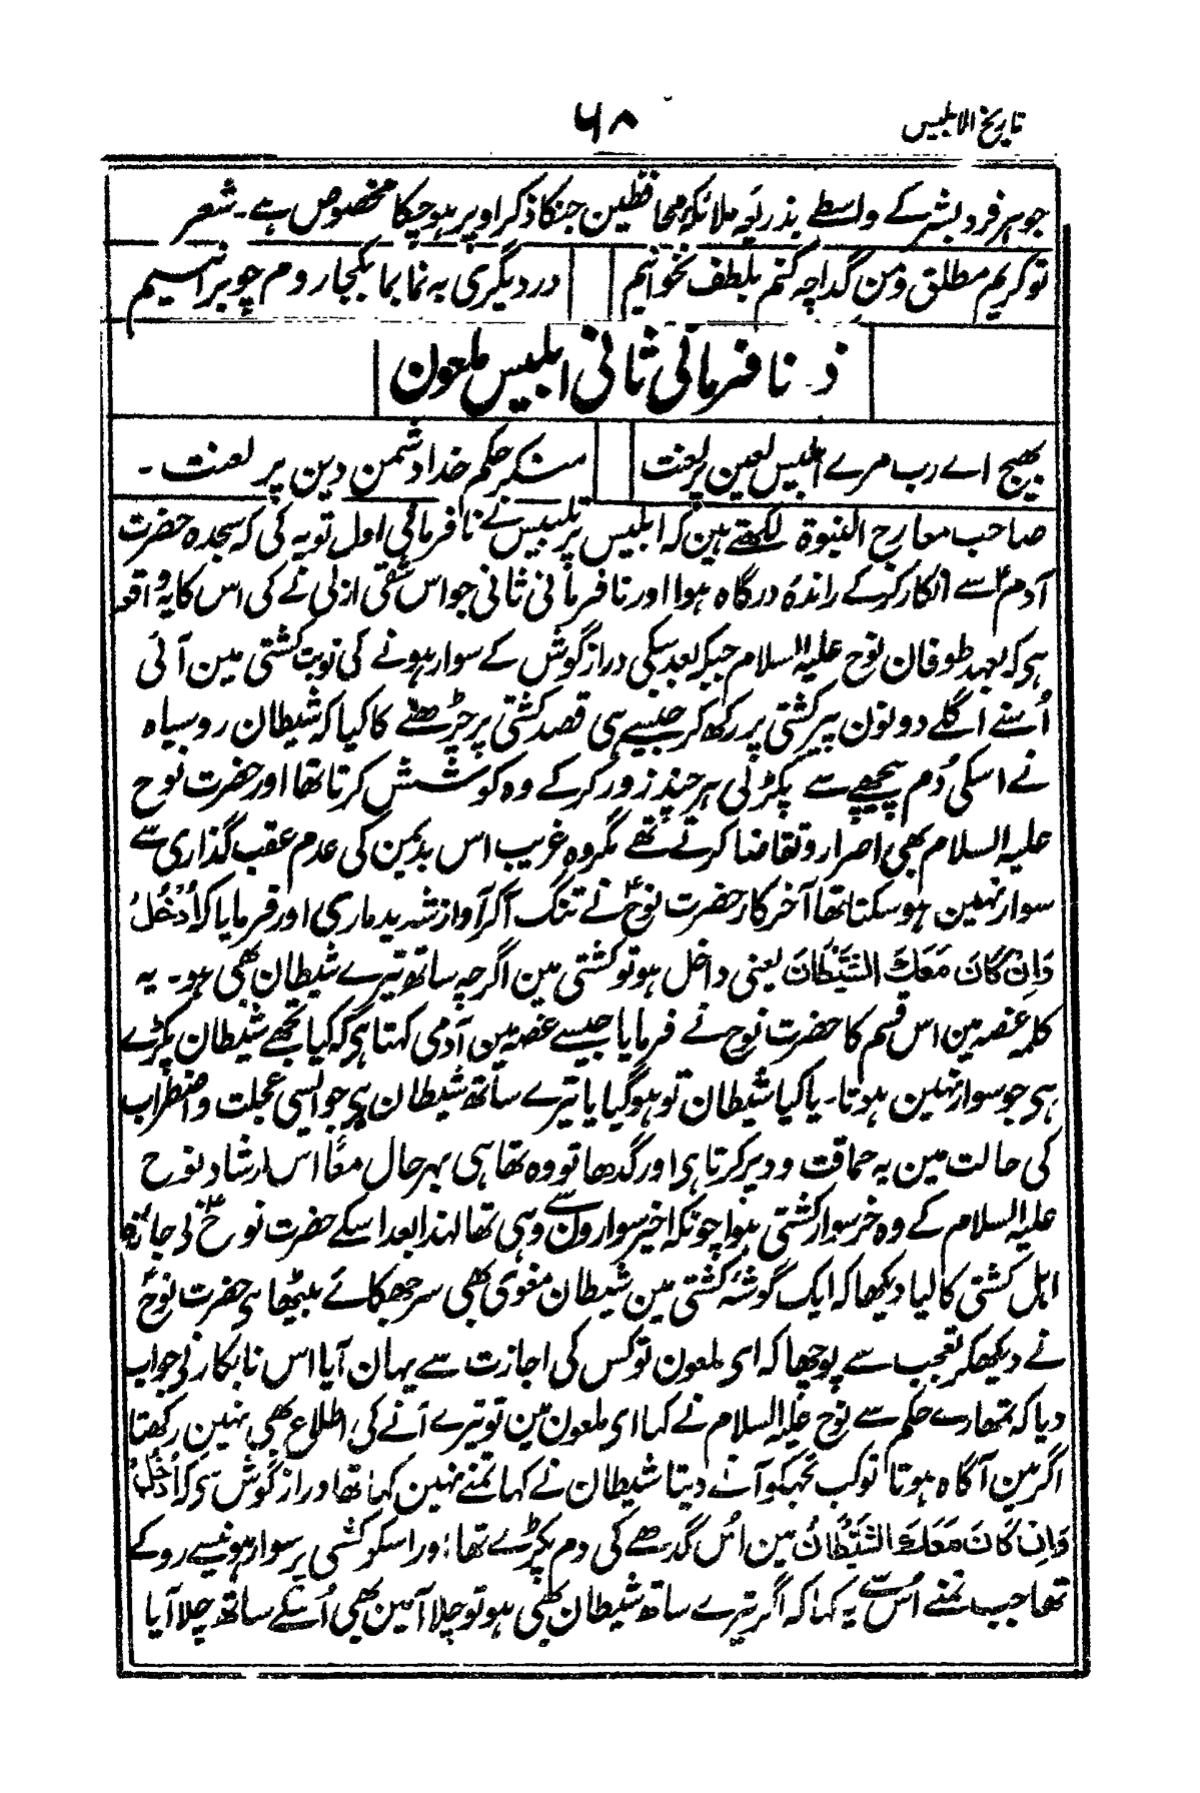 تاریخ الابلیس
۶۸
جو ہر فرد بشر کے واسطے بذریعہ ملائکہ محافظین جنکا ذکر اوپر ہوچکا مخصوص ہے۔ شعر
تو کریم مطلق و من گدا چہ کنم بلطف نخوانیم
در دیگری بہ نما بما بکجا روم چو برانیم
ذ۔ نافرمانی ثانی ابلیس ملعون
بھیج اے رب مرے ابلیس لعین پر لعنت
منکر حکم خدا دشمن دین پر لعنت۔
صاحب معارج النبوۃ لکھتے ہین کہ ابلیس پر تلبیس نے نافرمانی اول تو یہ کی کہ سجدہ حضرت
آدمؑ سے انکار کرکے راندۂ درگاہ ہوا اور نافرمانی ثانی جو اس شقی ازلی نے کی اس کا یہ واقعہ
ہی کہ بعہد طوفان نوح علیہ السلام جبکہ بعد سبکی دراز گوش کے سوار ہونے کی نوبت کشتی مین آئی
اُسنے اگلے دونون پیر کشتی پر رکھ کر جیسے ہی قصد کشتی پر چڑھنے کا کیا کہ شیطان رو سیاہ
نے اسکی دُم پیچھے سے پکڑ لی ہرچند زور کرکے وہ کوشش کرتا تھا اور حضرت نوح
علیہ السلام بھی اصرار و تقاضا کرتے تھے مگر وہ غریب اس بدیمن کی عدم عقب گذاری سے
سوار نہین ہوسکتا تھا آخرکار حضرت نوحؑ نے تنگ آکر آواز شدید ماری اور فرمایا کہ اُدْخُلْ
وَاِنْ كَانَ مَعَكَ الشَّيْطَانَ یعنی داخل ہو تو کشتی مین اگرچہ ساتھ تیرے شیطان بھی ہو۔ یہ
کلمہ غصہ مین اس قسم کا حضرت نوح نے فرمایا جیسے غصہ مین آدمی کہتا ہی کہ کیا تجھے شیطان پکڑے
ہی جو سوار نہین ہوتا۔ یا کیا شیطان تو ہوگیا یا تیرے ساتھ شیطان ہی جو ایسی عجلت و اضطراب
کی حالت مین یہ حماقت و دیر کرتا ہی اور گدھا تو وہ تھا ہی بہرحال معًا اس ارشاد نوح
علیہ السلام کے وہ خر سوار کشتی ہوا چونکہ اخیر سوارون سے وہی تھا لہذا بعد اسکے حضرت نوحؑ نے جائزہ
اہل کشتی کا لیا دیکھا کہ ایک گوشہ کشتی مین شیطان مغوی بھی سر جھکائے بیٹھا ہی حضرت نوحؑ
نے دیکھکر تعجب سے پوچھا کہ ای ملعون تو کس کی اجازت سے یہان آیا اس نابکار نے جواب
دیا کہ تمھارے حکم سے نوح علیہ السلام نے کہا ای ملعون مین تو تیرے آنے کی اطلاع بھی نہین رکھتا
اگر مین آگاہ ہوتا تو کب تجھکو آنے دیتا شیطان نے کہا تمنے نہین کہا تھا دراز گوش سے کہ اُدْخُلْ
وَاِنْ كَانَ مَعَكَ الشَّيْطَانُ مین اُس گدھے کی دم پکڑے تھا اور اسکو کشتی پر سوار ہونیسے روکے
تھا جب تمنے اُس سے یہ کہا کہ اگر تیرے ساتھ شیطان بھی ہو تو چلا آ مین بھی اُسکے ساتھ چلا آیا